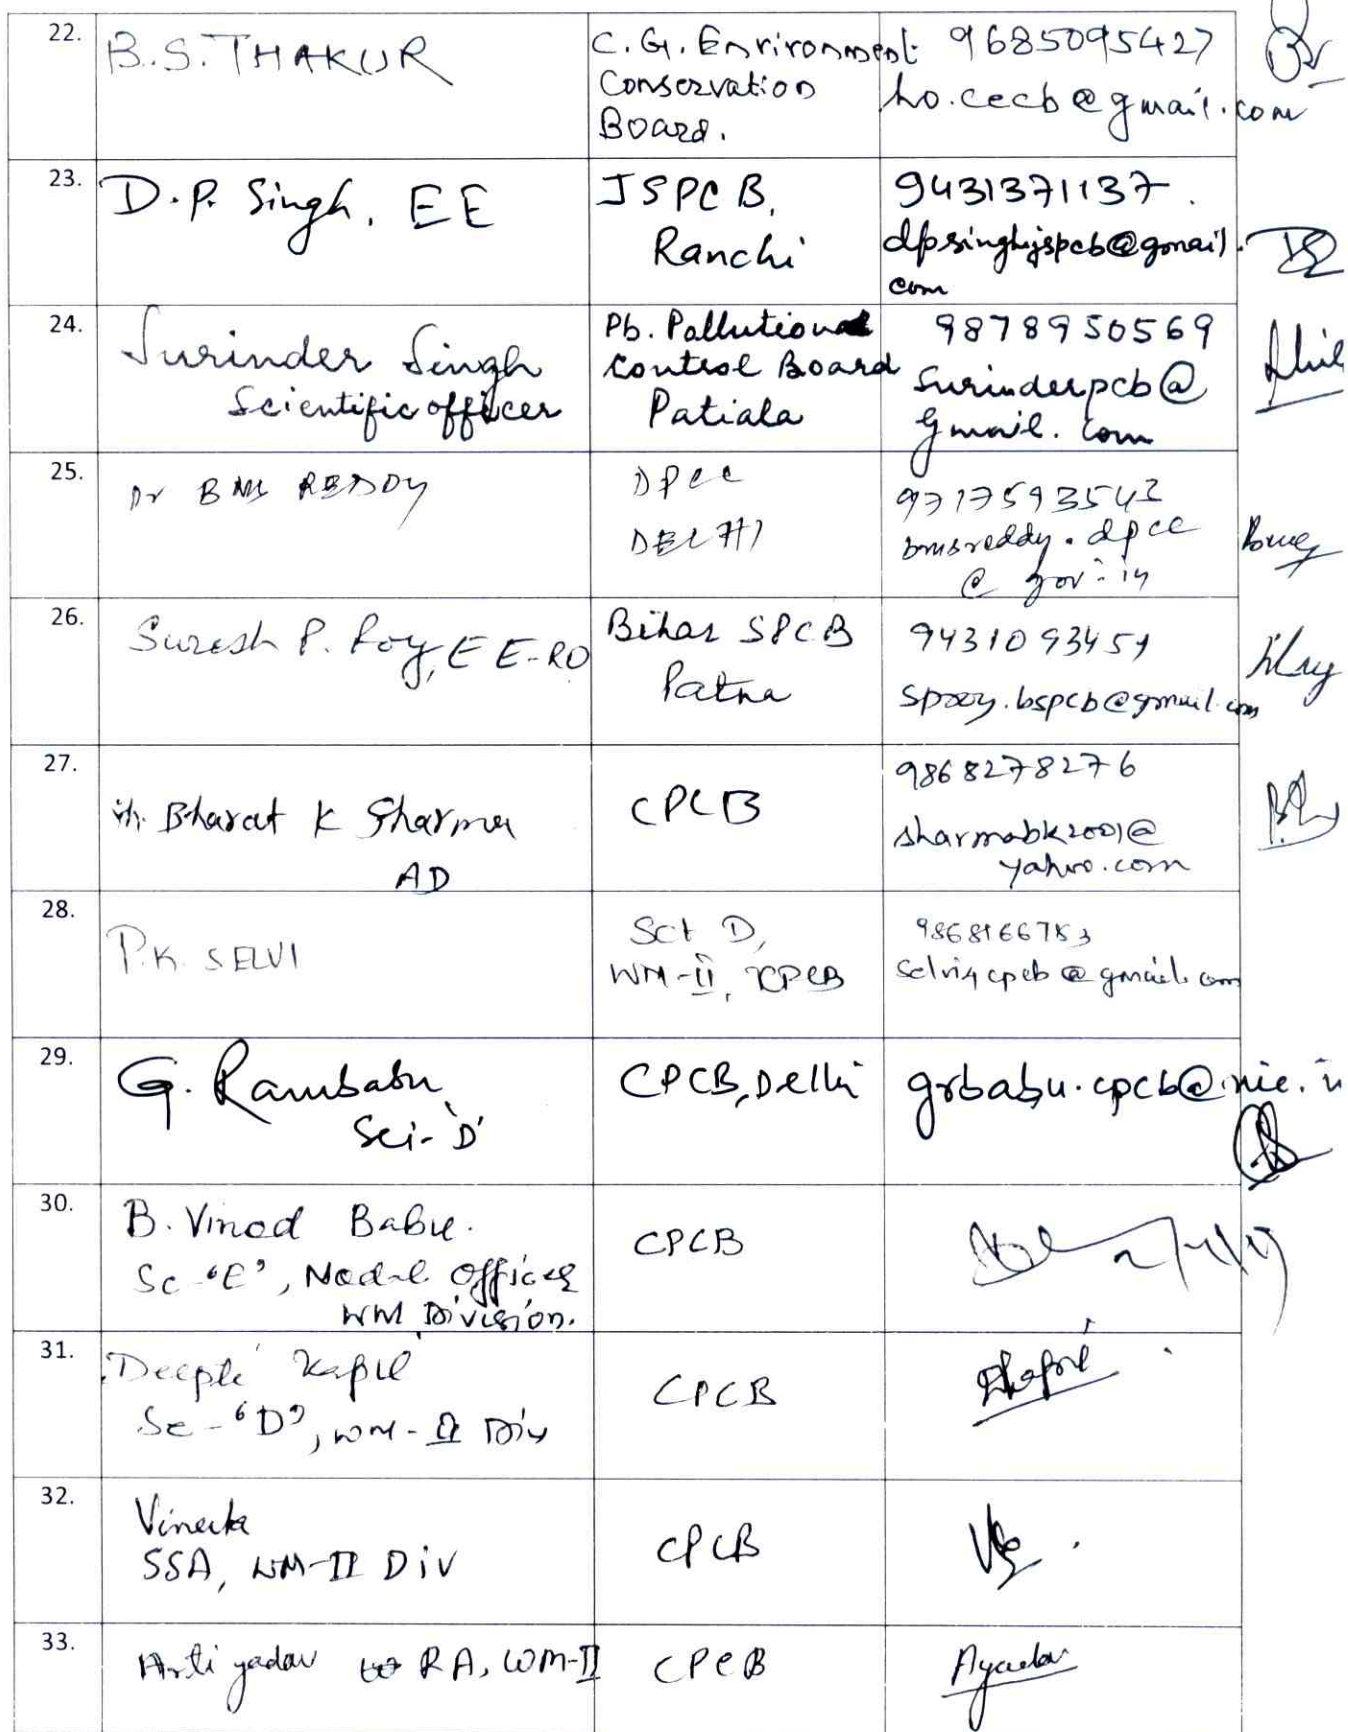 22.
B.S. THAKUR
C.G. Environment
Conservation
Board.
9685095427
ho.cecb@gmail.com
23.
D.P. Singh, EE
JSPCB,
Ranchi
9431371137.
dpsinghjspcb@gmail.
com
24.
Surinder Singh
Scientific officer
Pb. Pollution
Control Board
Patiala
9878950569
Surinderpcb@
gmail.com
25.
Dr BMS REDDY
DPCC
DELHI
9717593543
bmsreddy.dpcc
@gov.in
26.
Suresh P. Roy, EE-RO
Bihar SPCB
Patna
9431093451
sproy.bspcb@gmail.com
27.
Bharat K Sharma
AD
CPCB
9868278276
sharmabk2001@
yahoo.com
28.
P.K. SELVI
Sct D,
WM-II, CPCB
@gmail.com
29.
G. Rambabu
Sci-'D'
CPCB, Delhi
grbabu.cpcb@nic.in
30.
B. Vinod Babu.
Sc-'E', Nodal Officer
WM Division.
CPCB
31.
Deepti Kapil
Sc-"D", WM-II Div
CPCB
32.
Vineeta
SSA, WM-II Div
CPCB
33.
Arti yadav RA, WM-II
CPCB
Ayadav